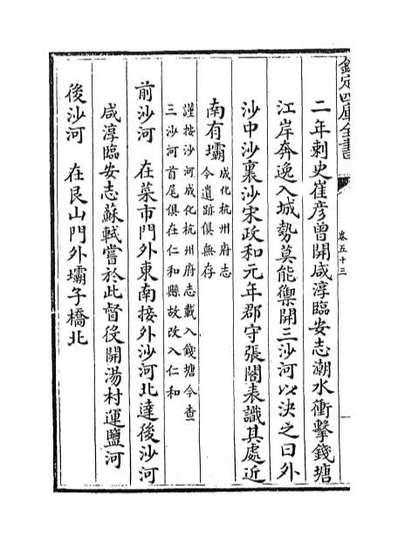 欽定四庫全書
卷五十三
二年刺史崔彥曾開咸淳臨安志潮水衝擊錢塘
江岸奔逸入城勢莫能禦開三沙河以決之曰外
沙中沙裏沙宋政和元年郡守張閣表識其處近
南有壩成化杭州府志
今遺跡俱無存
謹按沙河成化杭州府志載入錢塘今查
三沙河首尾俱在仁和縣故改入仁和
前沙河 在菜市門外東南接外沙河北達後沙河
咸淳臨安志蘇軾嘗於此督役開湯村運鹽河
後沙河 在艮山門外壩子橋北